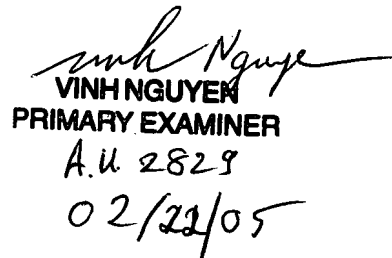 Vinh Nguye
VINH NGUYEN
PRIMARY EXAMINER
A.U. 2829
02/22/05